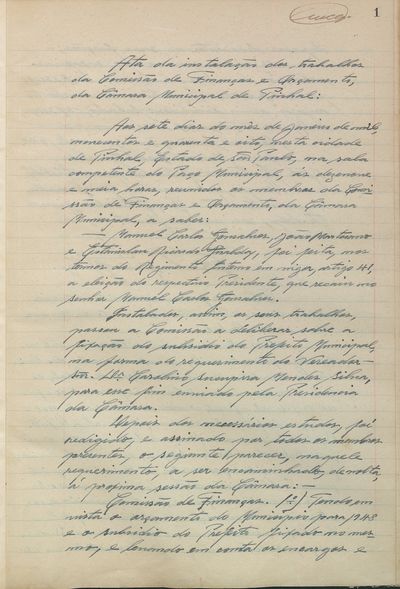 1
Ata da instalação dos trabalhos
da Comissão de Finanças e Orçamento,
da Câmara Municipal de Pinhal:
Aos sete dias do mês de Janeiro de mil,
novecentos e quarenta e oito, nesta cidade
de Pinhal, Estado de São Paulo, na sala
competente do Paço Municipal, ás dezenove
e meia horas, reunidos os membros da Comis
são de Finanças e Orçamento, da Câmara
Municipal, a saber:
— Manuel Carlos Gonsalves, João
e Estanislau, foi feita, nos
termos do Regimento Interno em vigor, artigo 41,
a eleição do respectivo Presidente, que recaiu no
senhor Manuel Carlos Gonsalves.
Instalados, assim, os seus trabalhos,
passou a Comissão a deliberar sobre a
fixação do subsidio do Prefeito Municipal,
na forma do requerimento do Vereador —
Carolino Mendes Silva,
para esse fim enviado pela Presidencia
da Câmara.
Depois dos necessários estudos, foi
redigido, e assinado por todos os membros
presentes, o seguinte parecer, naquele
requerimento a ser encaminhado, de volta,
á proxima sessão da Câmara: —
Comissão de Finanças. Tendo em
vista o orçamento do Municipio para 1948
e o subsidio do Prefeito fixado no mes
mo, e levando em conta os encargos e